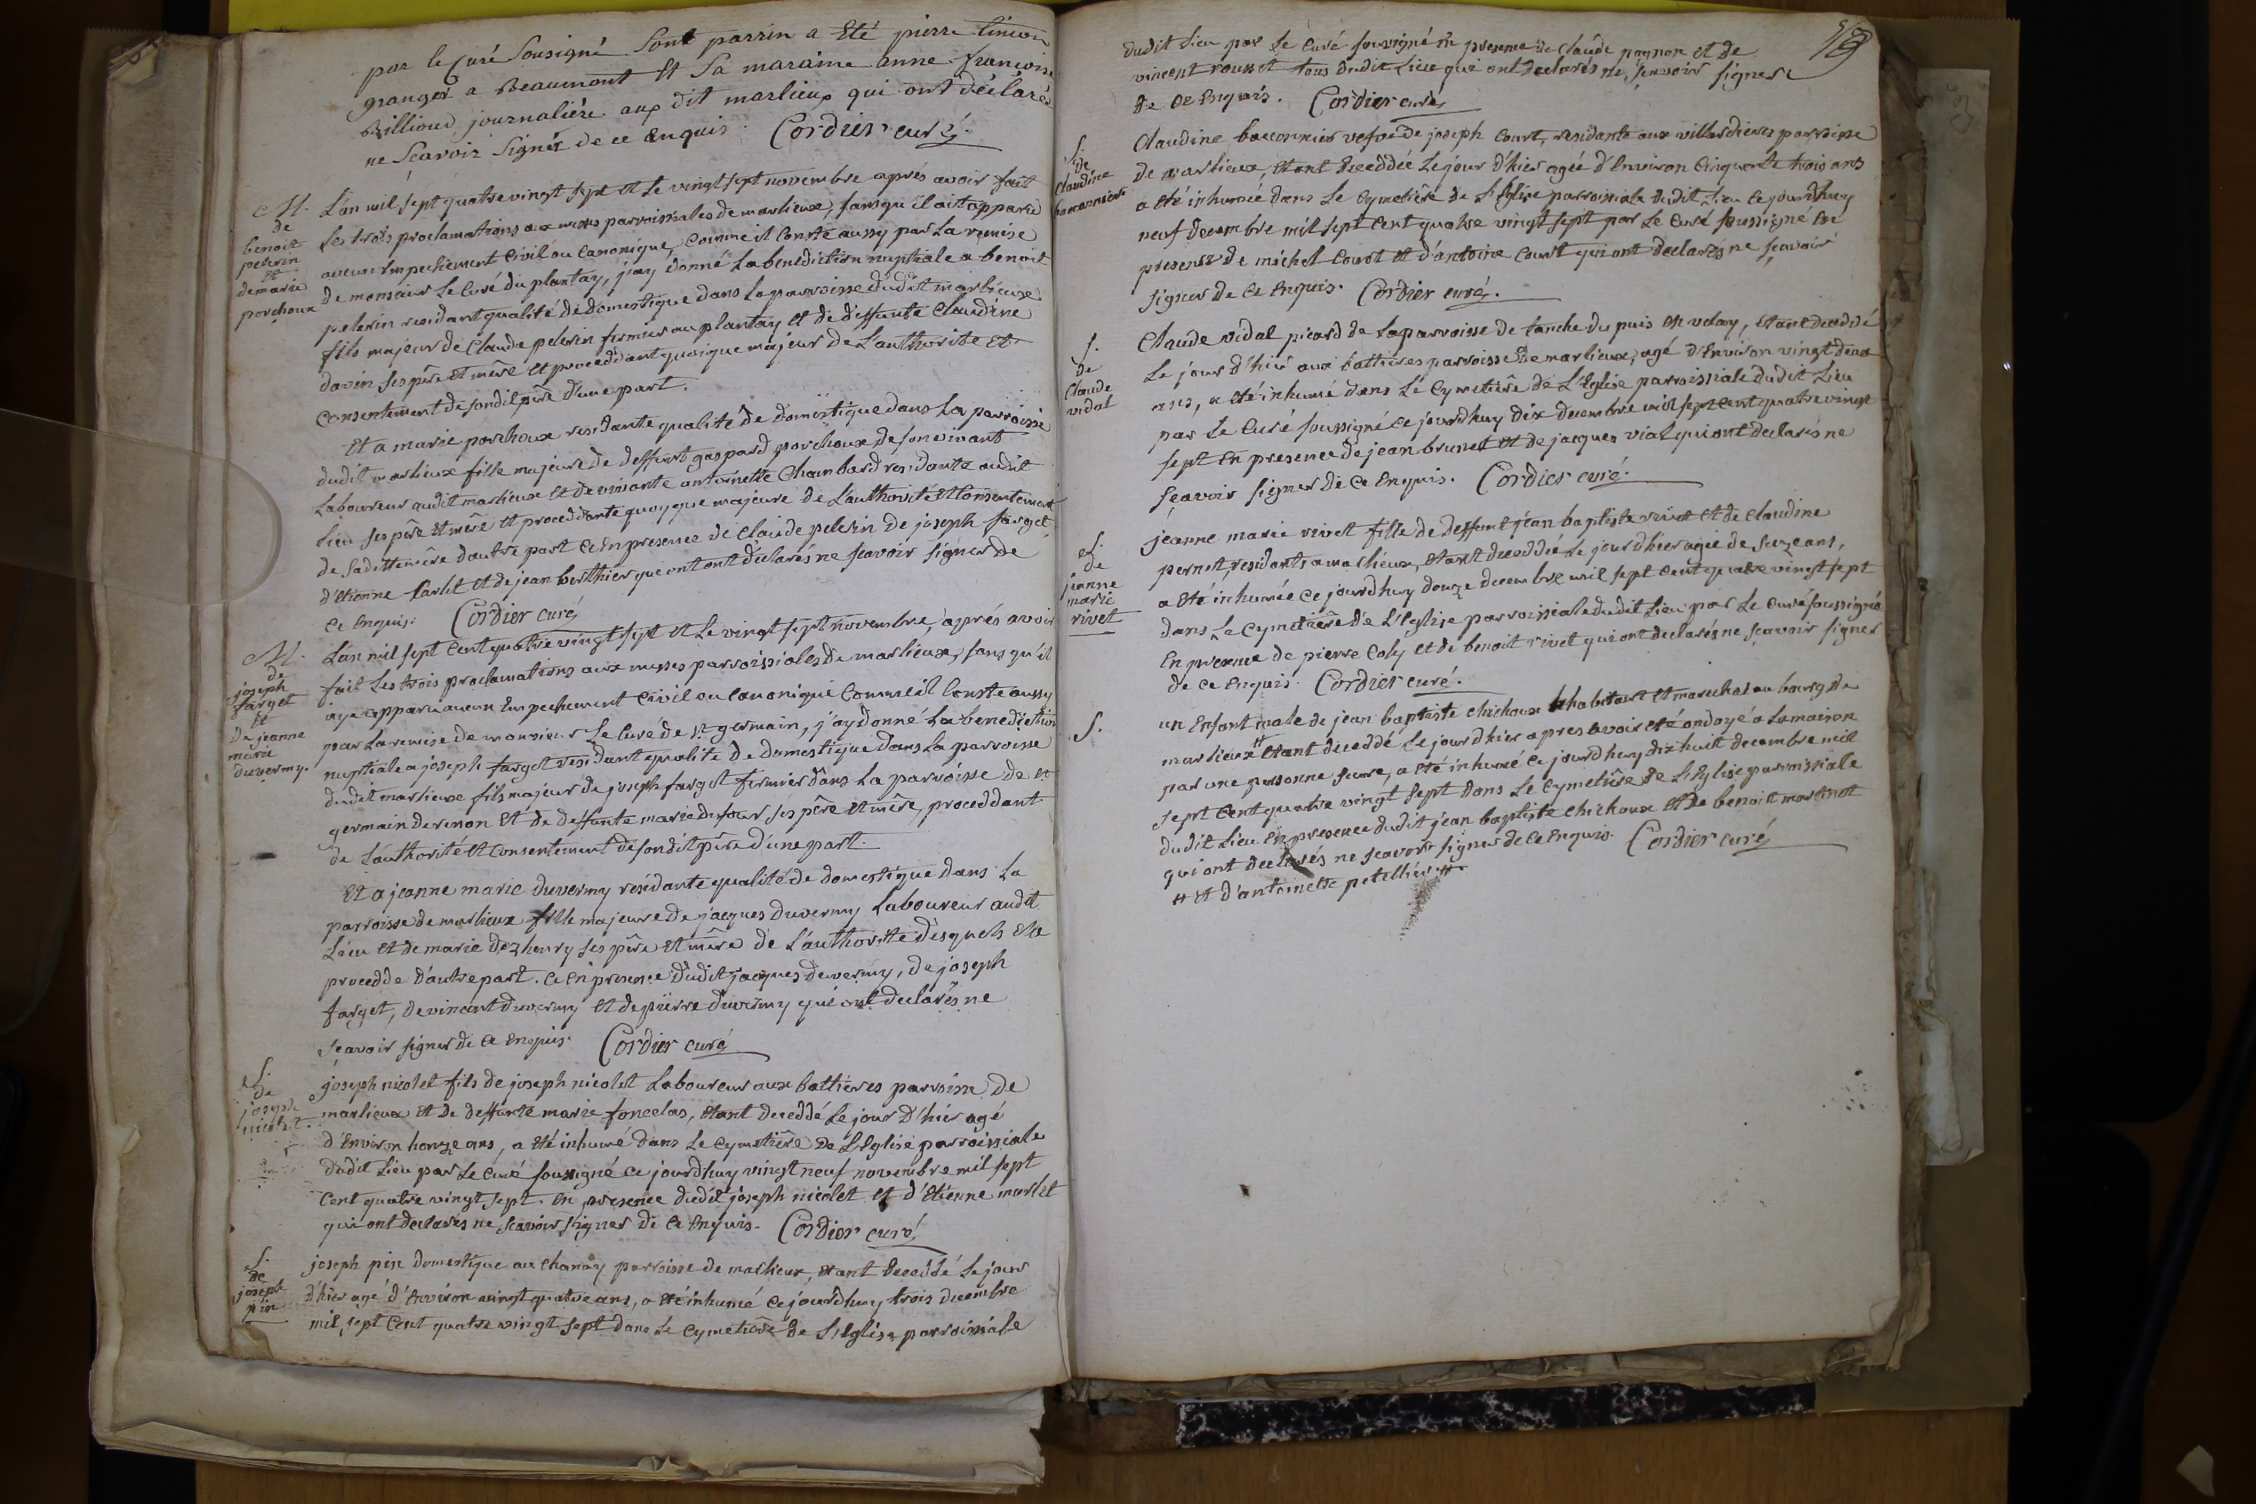 par le Curé Sousigné Sont parrin a Eté pierre tinion
granger a Beaumont Et Sa maraine anne françoise
Billioud journaliére aux dit marlieux qui ont déclarés
ne Scavoir Signér de ce Enquis. Cordier curé.
M.
de
benoit
pelerin
Et
demarie
porchoux
L'an mil sept quatre vingt sept et Le vingt sept novembre aprés avoir fait
Les trois proclamations aux messes parroissiales de marlieux, sans qu'il ait apparû
aucun Empechement Civil ou Canonique, Comme il Conste aussy par La remise
de monsieur Le Curé du plantay, j'ay donné La benediction nuptiale a benoit
pelerin residant qualité de domestique dans La parroisse dudit marlieux
fils majeur de Claude pelerin fermier au plantay et de deffunte Claudine
davin ses pêre Et mêre et proceddant quoique majeur de L'authorité et
Consentement de sondit pêre d'une part.
Et a marie porchoux residante qualité de domestique dans La parroisse
dudit marlieux fille majeure de deffunt gaspard porchoux de son vivant
Laboureur audit marlieux et de vivante antoinette Chambard residante audit
Lieu ses pêre et mêre et proceddante quoyque majeure de L'authorité et Consentement
de sadite mêre d'autre part Ce En presence de Claude pelerin de joseph farget
d'Etienne Carlet et de jean berthier qui ont ont declarés ne scavoir signer de
Ce Enquis. Cordier curé
M.
de
joseph
farget
Et
de jeanne
marie
duvermy.
L'an mil sept Cent quatre vingt sept et Le vingt sept novembre, aprés avoir
fait Les trois proclamations aux messes parroissiales de marlieux, sans qu'il
aye apparu aucun Empechement Civil ou Canonique Comme il Conste aussy
par La remise de monsieur Le Curé de st germain, j'ay donné La benediction
nuptiale a joseph farget residant qualité de domestique dans La parroisse
dudit marlieux fils majeur de joseph farget fermier dans La parroisse de st
germain de renon Et de deffunte marie dufour ses pêre et mêre, proceddant
de L'authorité et Consentement de sondit pêre d'une part.
Et a jeanne marie duvermy residante qualité de domestique dans La
parroisse de marlieux fille majeure de jacques duvermy Laboureur audit
Lieu et de marie dezheury ses pêre et mêre de L'authorité desquels Ele
procedde d'autre part. Ce En presence dudit jacques duvermy, de joseph
farget, de vincent duvermy et de pierre duvermy qui ont declarés ne
scavoir signer de Ce Enquis. Cordier curé
S.
de
joseph
nicolet.
joseph nicolet fils de joseph nicolet Laboureur aux battieres parroisse de
marlieux et de deffunte marie foncelas, Etant deceddé Le jour d'hier agé
d'Environ honze ans, a Eté inhumé dans Le Cymetiêre de L'Eglise parroissiale
dudit Lieu par Le Curé soussigné Ce jourdhuy vingt neuf novembre mil sept
Cent quatre vingt sept. En presence dudit joseph nicolet et d'Etienne marlet
qui ont declarés ne scavoir signer de Ce Enquis. Cordier curé
S.
de
joseph
pin
joseph pin domestique au Chanay parroisse de marlieux, Etant deceddé Le jour
d'hier agé d'Environ vingt quatre ans, a Eté inhumé Ce jourdhuy trois decembre
mil sept Cent quatre vingt sept dans Le Cymetiêre de L'Eglise parroissiale
dudit Lieu par Le Curé soussigné En presence de Claude pagnon et de
vincent rousset tous dudit Lieu qui ont declarés ne scavoir signer
de Ce Enquis. Cordier curé
S.
de
Claudine
Claudine baconnier vefve de joseph Court, residante aux villardieres parroisse
de marlieux, Etant deceddée Le jour d'hier agée d'Environ Cinquante trois ans
a Eté inhumée dans Le Cymetiêre de L'Eglise parroissiale dudit Lieu Ce jourdhuy
neuf decembre mil sept Cent quatre vingt sept par Le Curé soussigné En
presence de michel Court et d'antoine Court qui ont declarés ne scavoir
signer de Ce Enquis. Cordier curé.
S.
de
Claude
vidal
Claude vidal picard de La parroisse de tanche du puis En velay, Etant deceddé
Le jour d'hier aux battieres parroisse de marlieux, agé d'Environ vingt deux
ans, a Eté inhumé dans Le Cymetiêre de L'Eglise parroissiale dudit Lieu
par Le Curé soussigné Ce jourdhuy dix decembre mil sept Cent quatre vingt
sept En presence de jean brunet et de jacques vial qui ont declarés ne
scavoir signer de Ce Enquis. Cordier curé.
S.
de
jeanne
marie
rivet
jeanne marie rivet fille de deffunt jean baptiste rivet et de Claudine
pernet, residants a marlieux, Etant deceddée Le jour d'hier agée de seze ans,
a Eté inhumée Ce jourdhuy douze decembre mil sept Cent quatre vingt sept
dans Le Cymetiêre de L'Eglise parroissiale dudit Lieu par Le Curé soussigné
En presence de pierre Coly et de benoit rivet qui ont declarés ne scavoir signer
de Ce Enquis. Cordier curé.
S.
un Enfant male de jean baptiste Chichoux habitant et marechal au bourg de
marlieux # Etant deceddé Le jour d'hier apres avoir eté ondoyé a La maison
par une personne seure, a Eté inhumé Ce jourdhuy dix huit decembre mil
sept Cent quatre vingt sept dans Le Cymetiêre de L'Eglise parroissiale
dudit Lieu En presence dudit jean baptiste Chichoux et de benoit martinot
qui ont declarés ne scavoir signer de Ce Enquis. Cordier curé
# et d'antoinette petellier #.